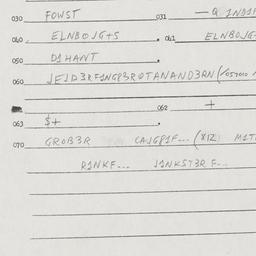 030 FOWST 031 — Q 1ND1F
040 ELNBOJG+S . 061 ELNBOJG-
050 D1HANT .
060 JEJD3RF1NGP3R0TANAND3RN (
062 +
063 $+ .
070 GROB3R CAJGP1F... (X1Z) M1T
R1NKF... J1NKST3R F...